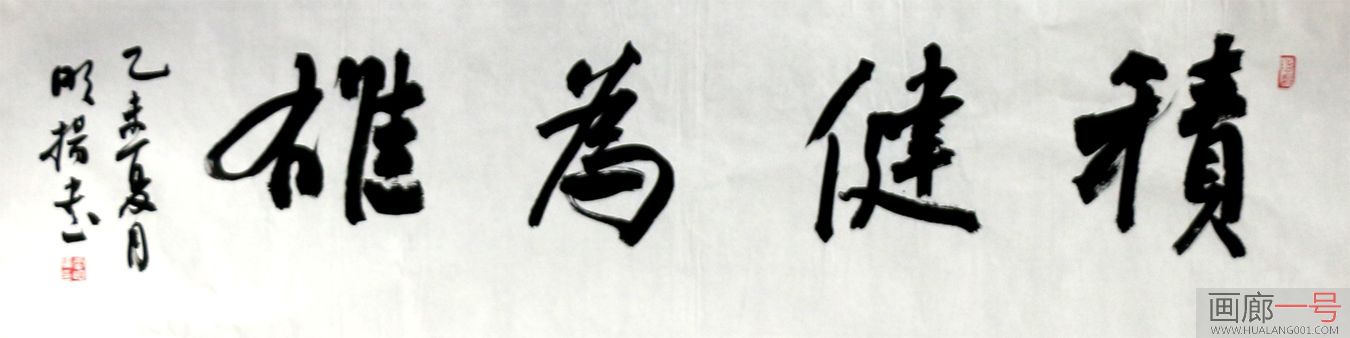 積健為雄
乙未夏月
明揚書
画廊一号
WWW.HUALANG001.COM